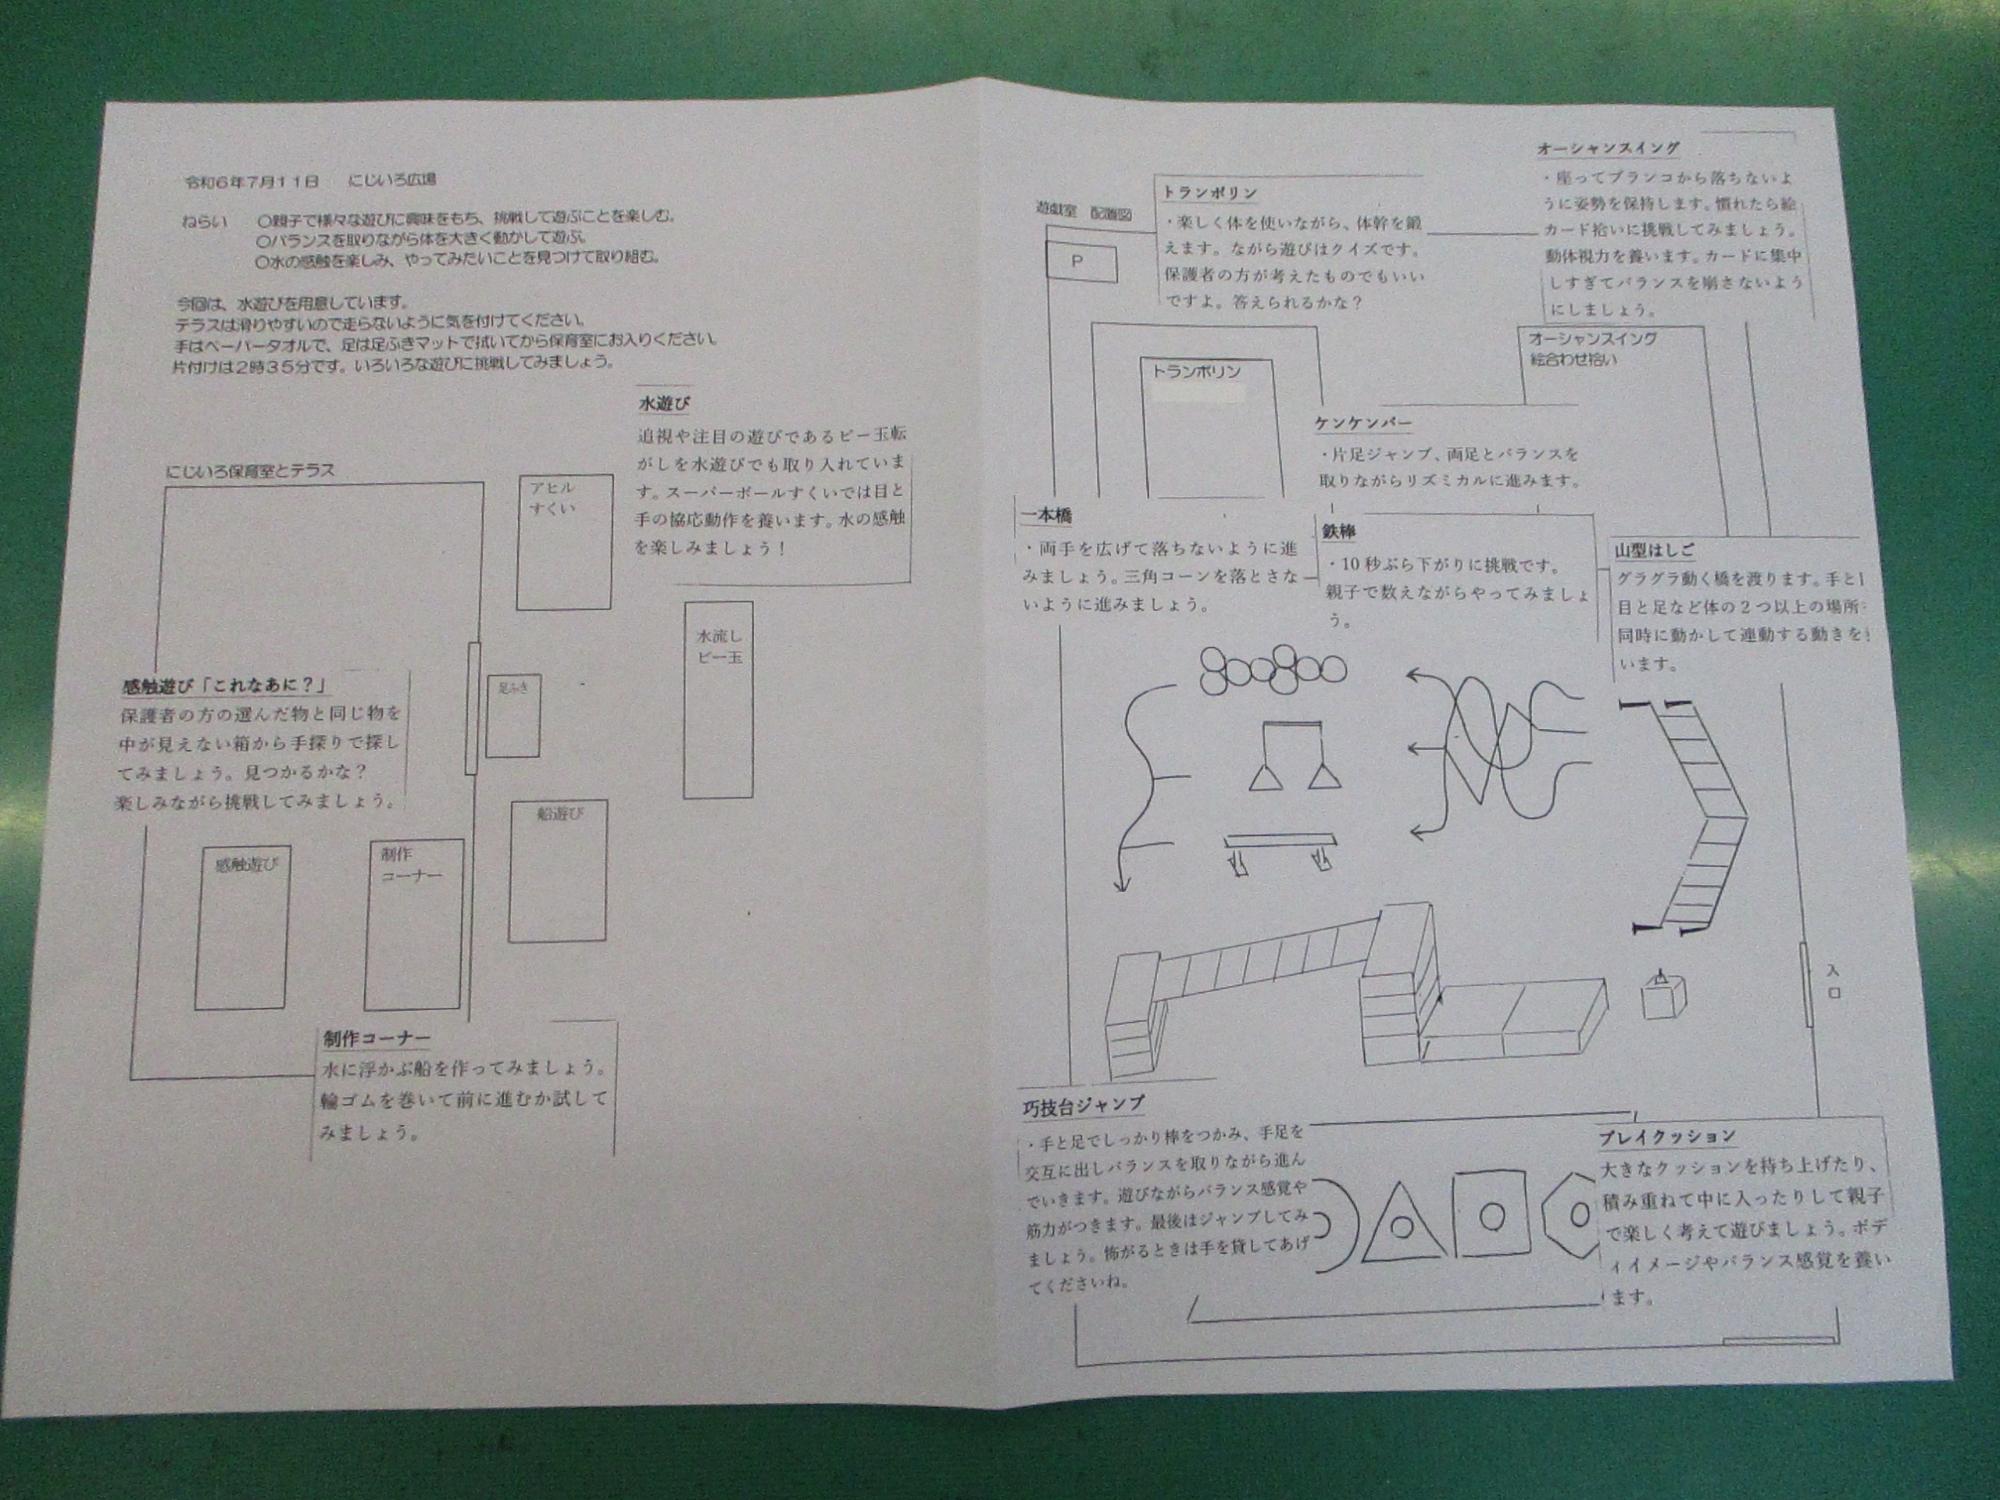 令和6年7月11日　にじいろ広場
ねらい　〇親子で様々な遊びに興味をもち、挑戦して遊ぶことを楽しむ。
〇バランスを取りながら体を大きく動かして遊ぶ。
〇水の感触を楽しみ、やってみたいことを見つけて取り組む。
今回は、水遊びを用意しています。
テラスは滑りやすいので走らないように気を付けてください。
手はペーパータオルで、足は足ふきマットで拭いてから保育室にお入りください。
片付けは2時35分です。いろいろな遊びに挑戦してみましょう。
水遊び
追視や注目の遊びであるビー玉転
がしを水遊びでも取り入れていま
す。スーパーボールすくいでは目と
手の協応動作を養います。水の感触
を楽しみましょう！
にじいろ保育室とテラス
アヒル
すくい
水流し
ビー玉
足ふき
感触遊び「これなあに？」
保護者の方の選んだ物と同じ物を
中が見えない箱から手探りで探し
てみましょう。見つかるかな？
楽しみながら挑戦してみましょう。
船遊び
感触遊び
制作
コーナー
制作コーナー
水に浮かぶ船を作ってみましょう。
輪ゴムを巻いて前に進むか試して
みましょう。
遊戯室　配置図
P
トランポリン
・楽しく体を使いながら、体幹を鍛
えます。ながら遊びはクイズです。
保護者の方が考えたものでもいい
ですよ。答えられるかな？
オーシャンスイング
・座ってブランコから落ちないよ
うに姿勢を保持します。慣れたら絵
カード拾いに挑戦してみましょう。
動体視力を養います。カードに集中
しすぎてバランスを崩さないよう
にしましょう。
オーシャンスイング
絵合わせ拾い
トランポリン
ケンケンパー
・片足ジャンプ、両足とバランスを
取りながらリズミカルに進みます。
一本橋
・両手を広げて落ちないように進
みましょう。三角コーンを落とさな
いように進みましょう。
鉄棒
・10秒ぶら下がりに挑戦です。
親子で数えながらやってみましょ
う。
山型はしご
グラグラ動く橋を渡ります。手と
目と足など体の2つ以上の場所
同時に動かして連動する動きを
います。
入
口
巧技台ジャンプ
・手と足でしっかり棒をつかみ、手足を
交互に出しバランスを取りながら進ん
でいきます。遊びながらバランス感覚や
筋力がつきます。最後はジャンプしてみ
ましょう。怖がるときは手を貸してあげ
てくださいね。
プレイクッション
大きなクッションを持ち上げたり、
積み重ねて中に入ったりして親子
で楽しく考えて遊びましょう。ボデ
ィイメージやバランス感覚を養い
ます。